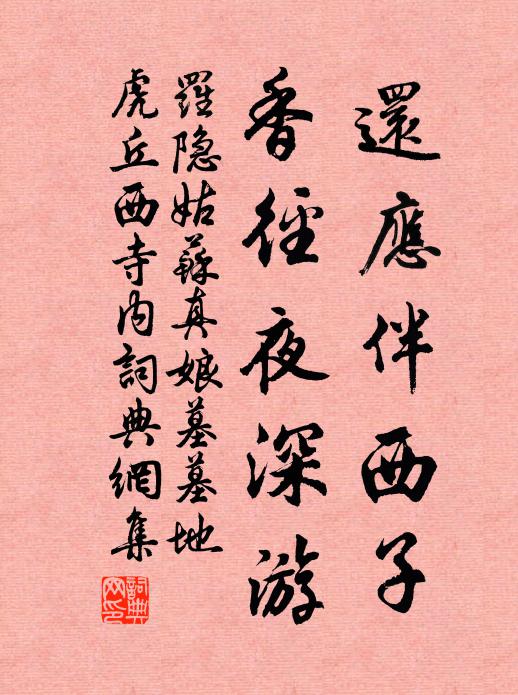 還應伴西子
香徑夜深游
羅隐姑蘇真娘墓墓地
虎丘西寺内詞典網集
詞典网印